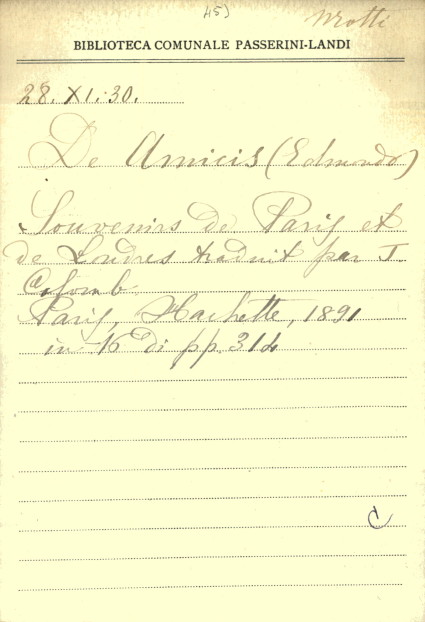 45)
BIBLIOTECA COMUNALE PASSERINI-LANDI
28. XI. 30.
De Amicis (Edmondo)
Souvenirs de Paris et
de Londres traduit par J.
Colomb
Paris, Hachette, 1891
in-16 di pp. 314
C